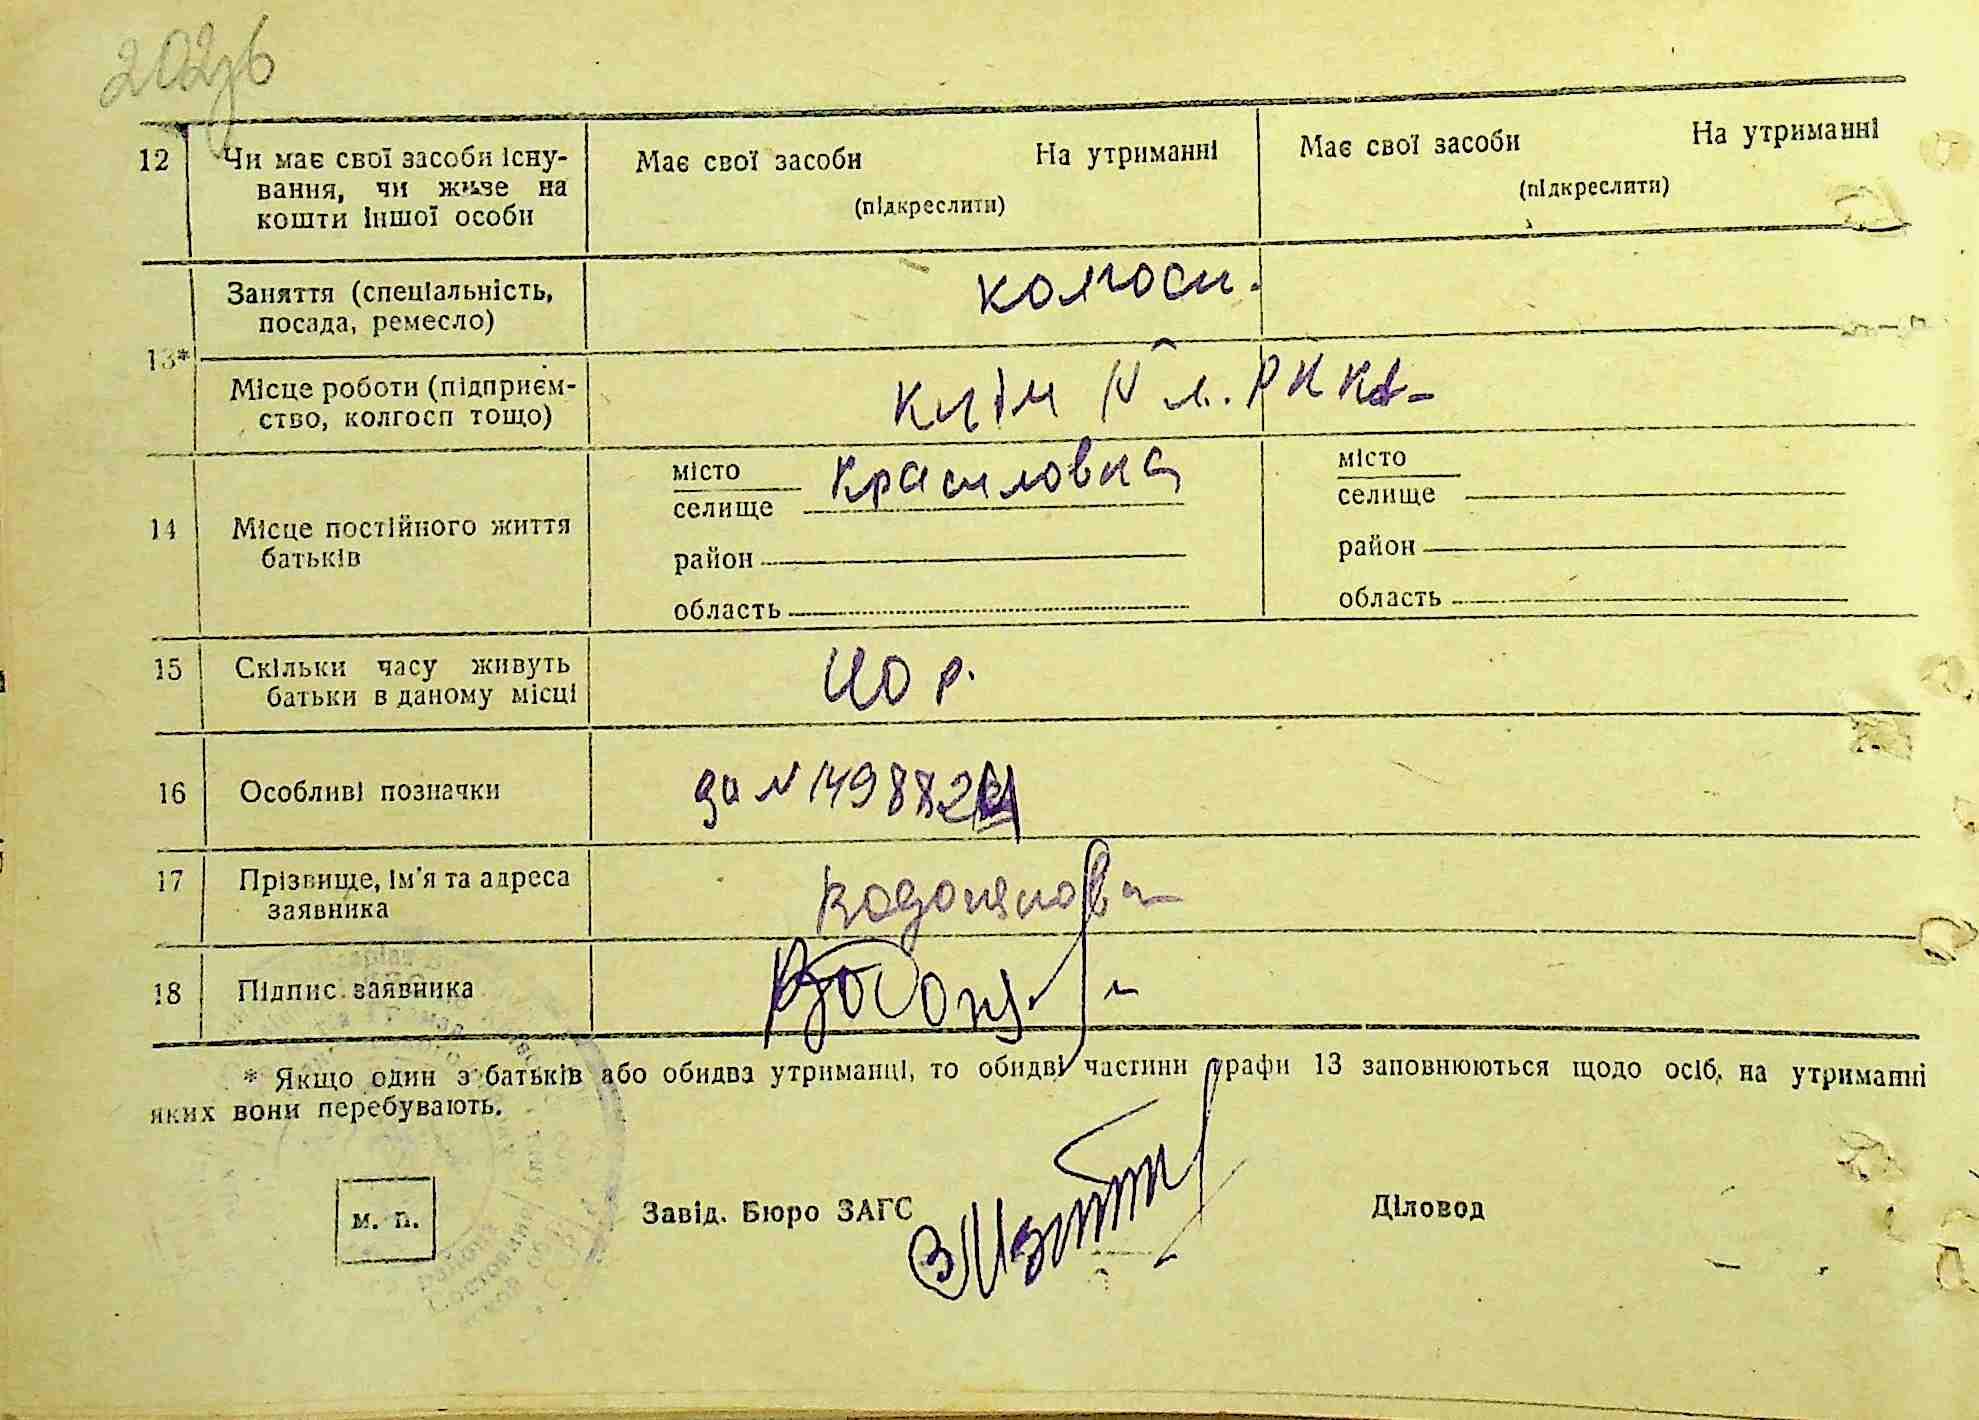 12 Чи має свої засоби існу-
вання, чи живе на
кошти іншої особи
Має свої засоби На утриманні
(підкреслити)
Має свої засоби На утриманні
(підкреслити)
13*
Заняття (спеціальність,
посада, ремесло)
колгосп.
Місце роботи (підприєм-
ство, колгосп тощо)
РККА
14 Місце постійного життя
батьків
місто
селище
район
область
місто
селище
район
область
15 Скільки часу живуть
батьки в даному місці
р.
16 Особливі позначки
17 Прізвище, ім'я та адреса
заявника
Водопянова
18 Підпис заявника
* Якщо один з батьків або обидва утриманці, то обидві частини графи 13 заповнюються щодо осіб, на утриманні
яких вони перебувають.
м. п.
Завід. Бюро ЗАГС
Діловод